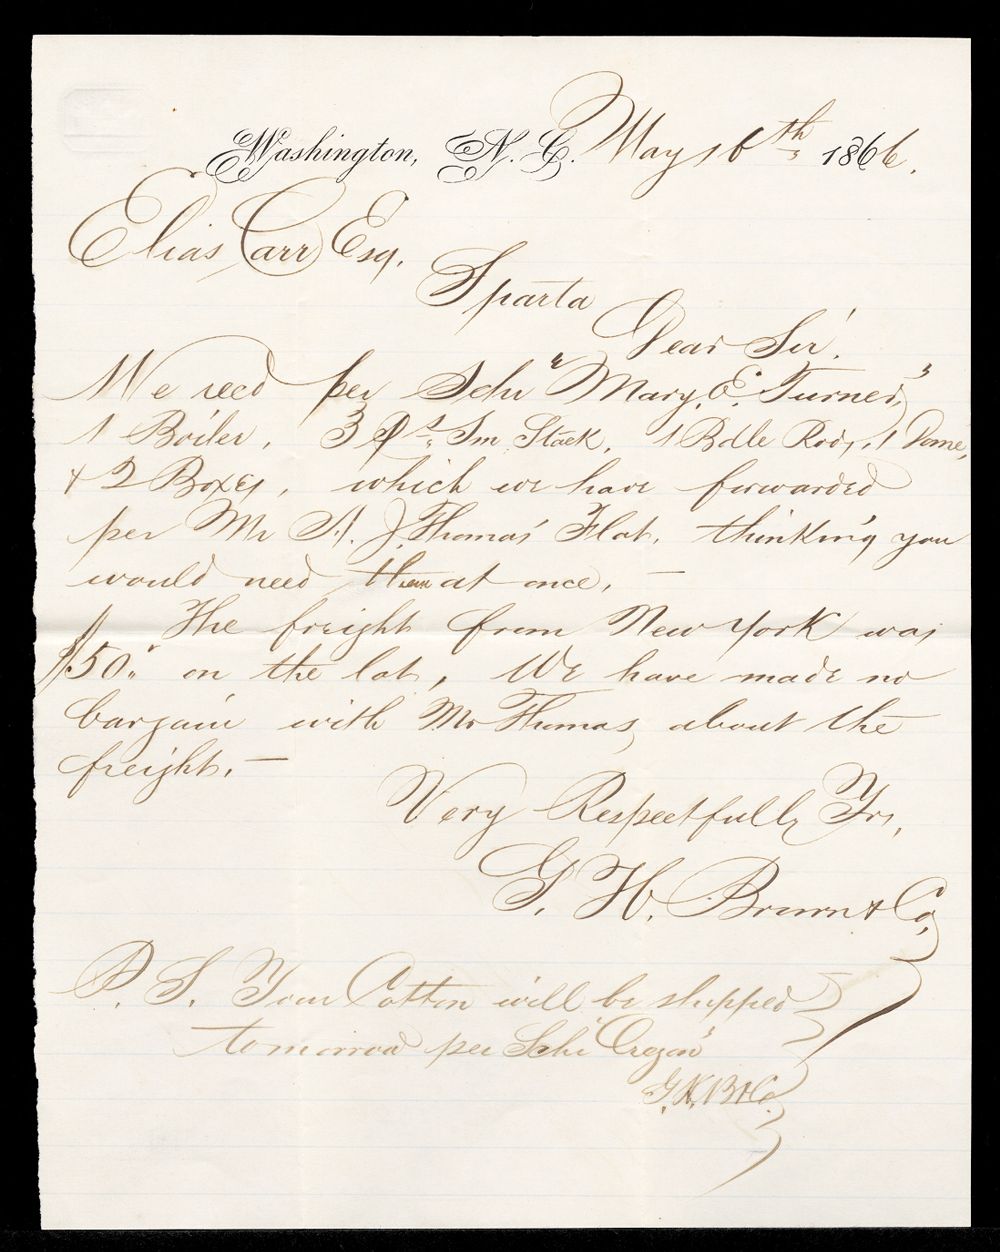 Washington, N.C. May 16th 1866.
Elias Carr Esq.
Sparta
Dear Sir.
We recd per Schr "Mary. E. Turner,"
1 Boiler, 3 Ps. Sm Stack, 1 Bdle Rods, 1 Dome,
& 2 Boxes, which we have forwarded
per Mr A. J. Thomas' Flat, thinking you
would need them at once. —
The freight from New York was
$50.. on the lot, We have made no
bargain with Mr Thomas about the
freight. —
Very Respectfully Yrs,
G. H. Brown & Co,
P. S. Your Cotton will be shipped
tomorrow per Schr "Oregon"
G. H. B & Co.